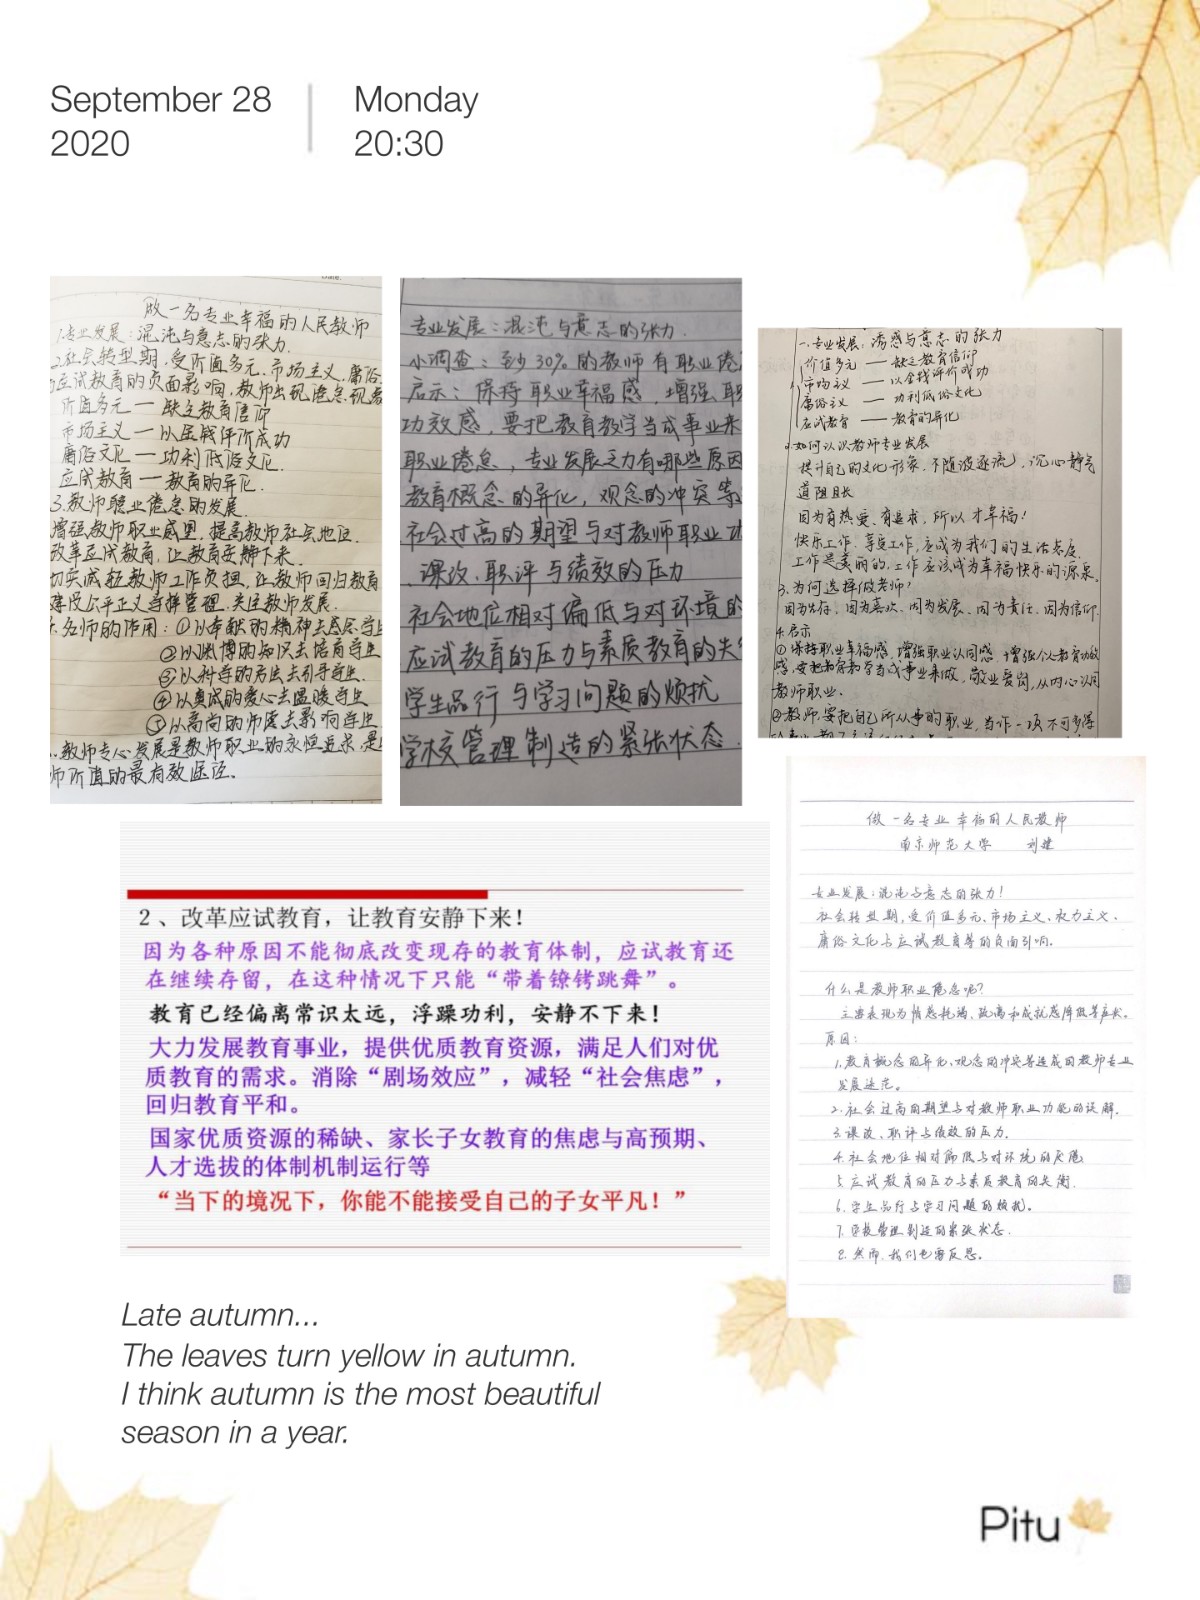 September 28
2020
Monday
20:30
做一名专业幸福的人民教师
1.专业发展：混沌与意志的张力.
2.社会转型期.受价值多元.市场主义.庸俗
应试教育的负面影响,教师出现倦怠现象
价值多元 — 缺乏教育信仰
市场主义 — 以金钱评价成功
庸俗文化 — 功利低俗文化.
应试教育 — 教育的异化.
3.教师职业倦怠的发展.
增强教师职业威望,提高教师社会地位.
改革应试教育,让教育安静下来.
切实减轻教师工作负担,让教师回归教育
建设公平正义学校管理.关注教师发展.
名师的作用：①以奉献的精神去感染学生
②以渊博的知识去培育学生
③以科学的方法去引导学生.
④以真诚的爱心去温暖学生
⑤以高尚的师德去影响学生
教师专心发展是教师职业的永恒追求.是
师价值的最有效途径.
专业发展：混沌与意志的张力.
小调查：至少30%的教师有职业倦
启示：保持职业幸福感.增强职
功效感,要把教育教学当成事业来
职业倦怠,专业发展乏力有哪些原因
教育概念的异化,观念的冲突等
社会过高的期望与对教师职业功
课改、职评与绩效的压力
社会地位相对偏低与对环境的
应试教育的压力与素质教育的失
学生品行与学习问题的烦扰
学校管理制造的紧张状态.
一.专业发展：诱惑与意志的张力
价值多元 — 缺乏教育信仰
市场主义 — 以金钱评价成功
庸俗主义 — 功利低俗文化
应试教育 — 教育的异化
2.如何认识教师专业发展
设计自己的文化形象.不随波逐流,沉心静气
道阻且长
因为有热爱、有追求,所以才幸福!
快乐工作,享受工作,应成为我们的生活态度.
工作是美丽的,工作应该成为幸福快乐的源泉.
3.为何选择做老师?
因为生存、因为喜欢、因为发展、因为责任、因为信仰
4.启示
①保持职业幸福感,增强职业认同感,增强个人教育功效
感,要把教育教学当成事业来做,敬业爱岗,从内心认同
教师职业.
②教师,要把自己所从事的职业,当作一项不可多得
做一名专业幸福的人民教师
南京师范大学 刘建
专业发展：混沌与意志的张力!
社会转型期,受价值多元、市场主义、权力主义、
庸俗文化与应试教育等的负面引响.
什么是教师职业倦怠呢?
主要表现为情感耗竭、疏离和成就感降低等症状.
原因：
1.教育概念的异化、观念的冲突等造成的教师专业
发展迷茫。
2.社会过高的期望与对教师职业功能的误解.
3.课改、职评与绩效的压力.
4.社会地位相对偏低与对环境的厌倦
5.应试教育的压力与素质教育的失衡.
6.学生品行与学习问题的烦扰。
7.学校管理制造的紧张状态.
8.然而,我们也需反思。
2、改革应试教育，让教育安静下来！
因为各种原因不能彻底改变现存的教育体制，应试教育还
在继续存留，在这种情况下只能“带着镣铐跳舞”。
教育已经偏离常识太远，浮躁功利，安静不下来！
大力发展教育事业，提供优质教育资源，满足人们对优
质教育的需求。消除“剧场效应”，减轻“社会焦虑”，
回归教育平和。
国家优质资源的稀缺、家长子女教育的焦虑与高预期、
人才选拔的体制机制运行等
“当下的境况下，你能不能接受自己的子女平凡！”
Late autumn...
The leaves turn yellow in autumn.
I think autumn is the most beautiful
season in a year.
Pitu